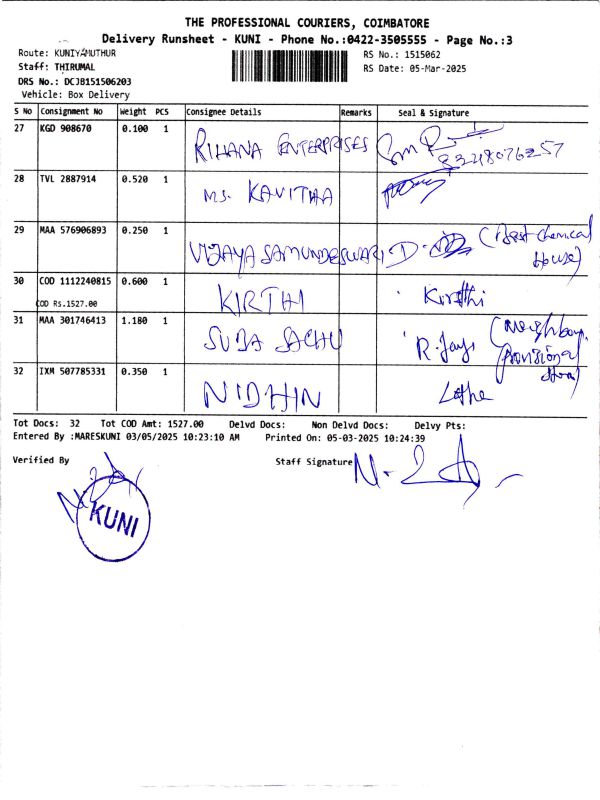 THE PROFESSIONAL COURIERS, COIMBATORE
Delivery Runsheet - KUNI - Phone No.:0422-3505555 - Page No.:3
Route: KUNIYAMUTHUR RS No.: 1515062
Staff: THIRUMAL RS Date: 05-Mar-2025
DRS No.: DCJ8151506203
Vehicle: Box Delivery
S No Consignment No Weight PCS Consignee Details Remarks Seal & Signature
27 KGD 908670 0.100 1 RIHANA ENTERPRISES
28 TVL 2887914 0.520 1 MS. KAVITHA
29 MAA 576906893 0.250 1 VIJAYA SAMUNDESWARI. D. chemical
House)
30 COD 1112240815 0.600 1 KIRTHI Kirthi
COD RS.1527.00
31 MAA 301746413 1.180 1 SUBA SACHU (Neighbour
Provisional
32 IXM 507785331 0.350 1 NIDHIN
Tot Docs: 32 Tot COD Amt: 1527.00 Delvd Docs: Non Delvd Docs: Delvy Pts:
Entered By :MARESKUNI 03/05/2025 10:23:10 AM Printed On: 05-03-2025 10:24:39
Verified By Staff Signature
KUNI